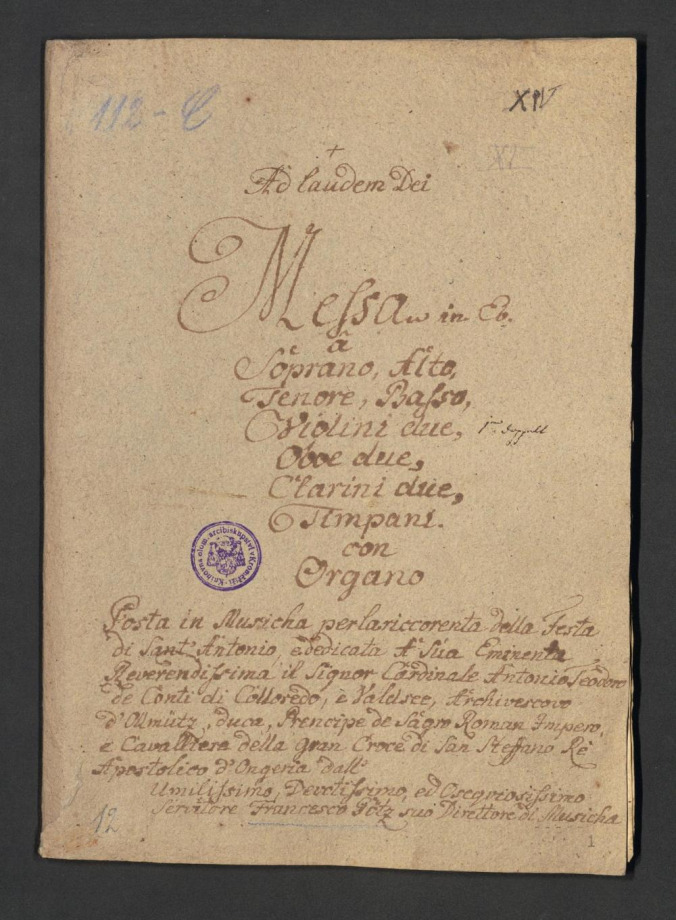 112 - C
XIV
XI
+
Ad laudem Dei
Messa in Eb.
â
Soprano, Alto,
Tenore, Basso,
Violini due,
Oboe due,
Clarini due,
Timpani.
con
Organo
Knihovna olom. arcibiskupství v Kroměříži
Posta in Musicha perlariccorenta della Festa
di Sant' Antonio, e dedicata A Sua Eminenta
Reverendissima il Signor Cardinale Antonio Teodoro
de Conti di Colloredo, è Valdsee, Archivescovo
d'Ollmütz, duca, Prencipe de Sagro Roman Impero,
e Cavalliere della gran Croce di San Steffano Rè
Apostolico d'Ongeria dall'
Umilissimo, Devotissimo, ed Osequiosissimo
Servitore Francesco Götz suo Direttore di Musicha
12
1